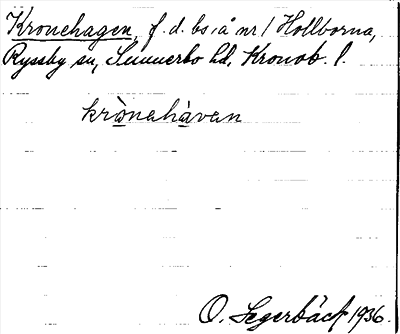 Kronehagen, f. d. bs. å nr 1 Hollborna,
Ryssby sn, Sunnerbo hd, Kronob. l.
krònahàvan
O. Segerbäck 1936.